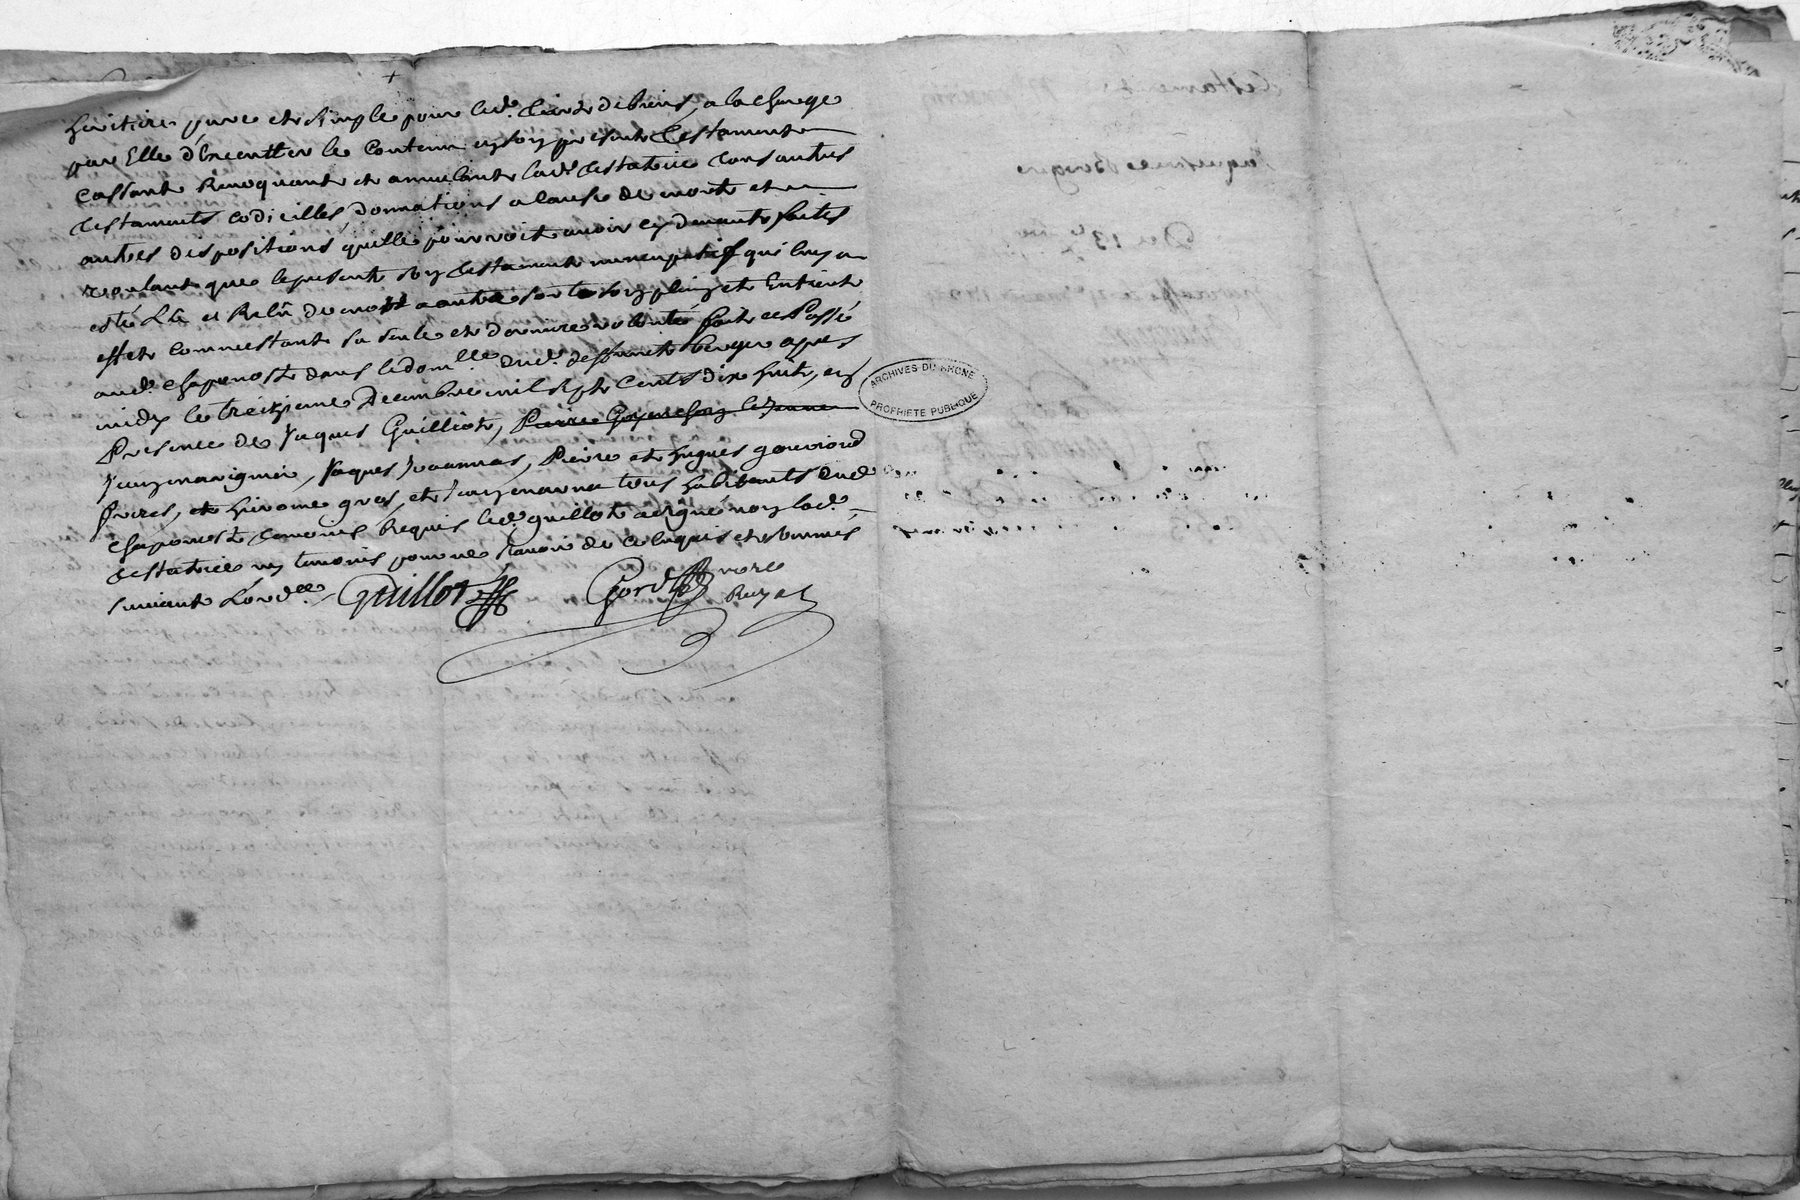 heritiere pure et simple pour led. tiers de biens, a la charge
par Elle d'executter le Contenu en son present testament
Cassant Revoquant et annulant lad. testatrice tous autres
testaments codicilles, donnations a cause de mort et
autres dispositions quelle pourroit avoir cy devant faites
voulant que le present son testament nuncupatif qui luy a
esté Lû et Relû de mot a autre sorte son plein et Entient
effet comme estant sa seule et derniere volonté fait et Passé
aud. Chaponost dans le dom.lle dud. deffunt berger apres
midy le treizieme Decembre mil sept cents dix huit, en
Presence de Jaques Guilliot, Pierre le Jeune
Jean , Jaques Joannas, Pierre et hugues gouviond
freres, et hierome gros, et Jean tous habitants dud.
Chaponost temoins Requis led. guillot a signé non lad.
testatrice ny temoins pour ne scavoir de ce Enquis et sommés
suivant Lord.ce
Guillot
nore
Royal
ARCHIVES DU RHONE
PROPRIETE PUBLIQUE
Testament
Berger
Du 13e